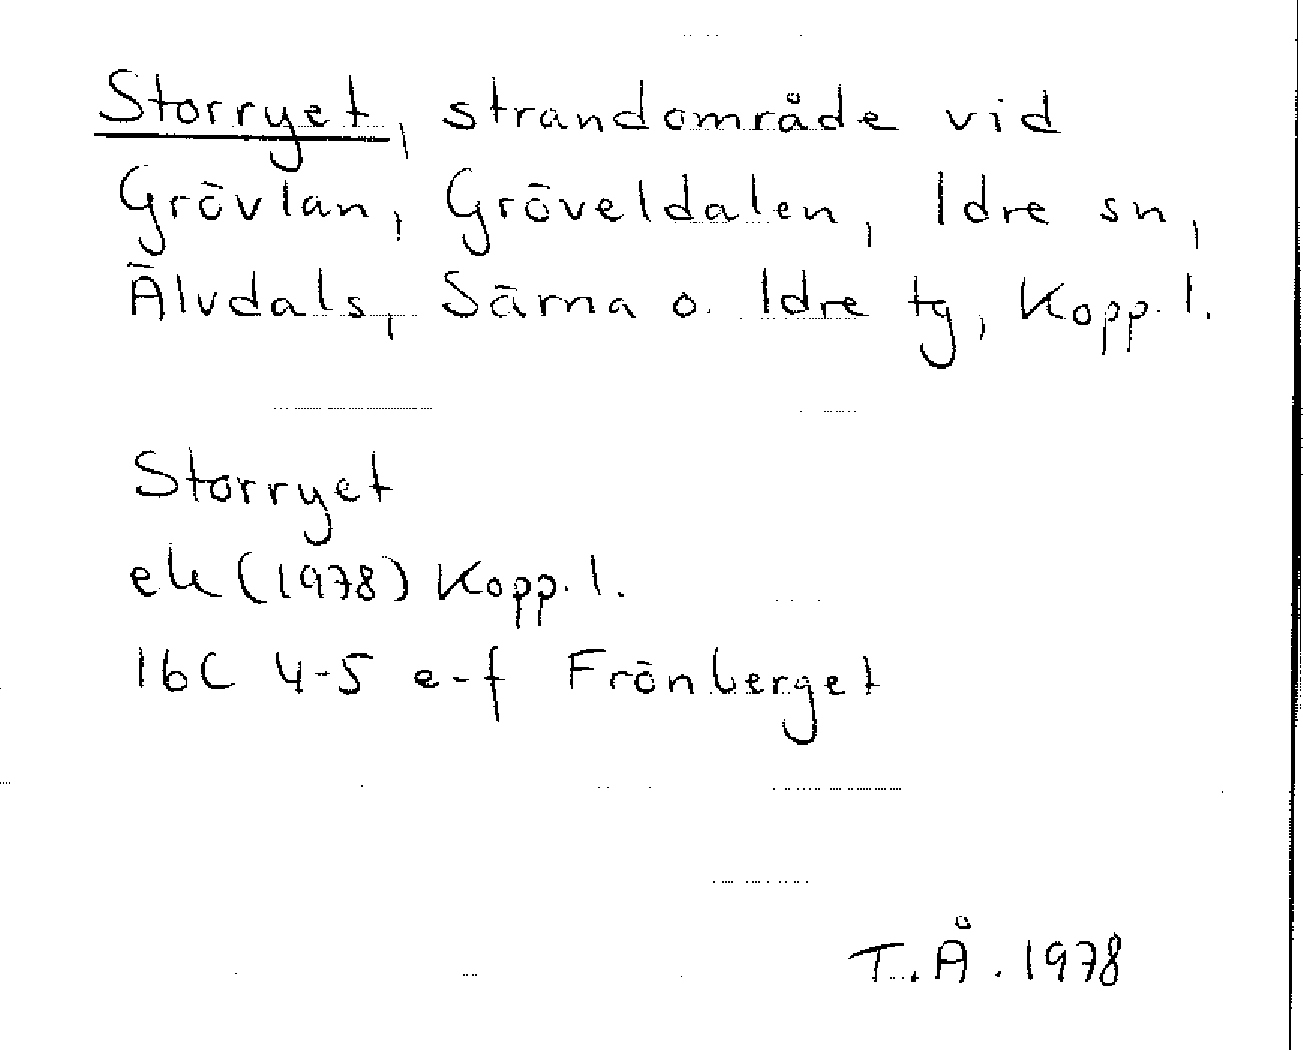 Storryet, strandområde vid
Grövlan, Gröveldalen, Idre sn,
Älvdals, Särna o. Idre tg, Kopp. l.
Storryet
ek (1978) Kopp. l.
16C 4-5 e-f Frönberget
T. Å. 1978